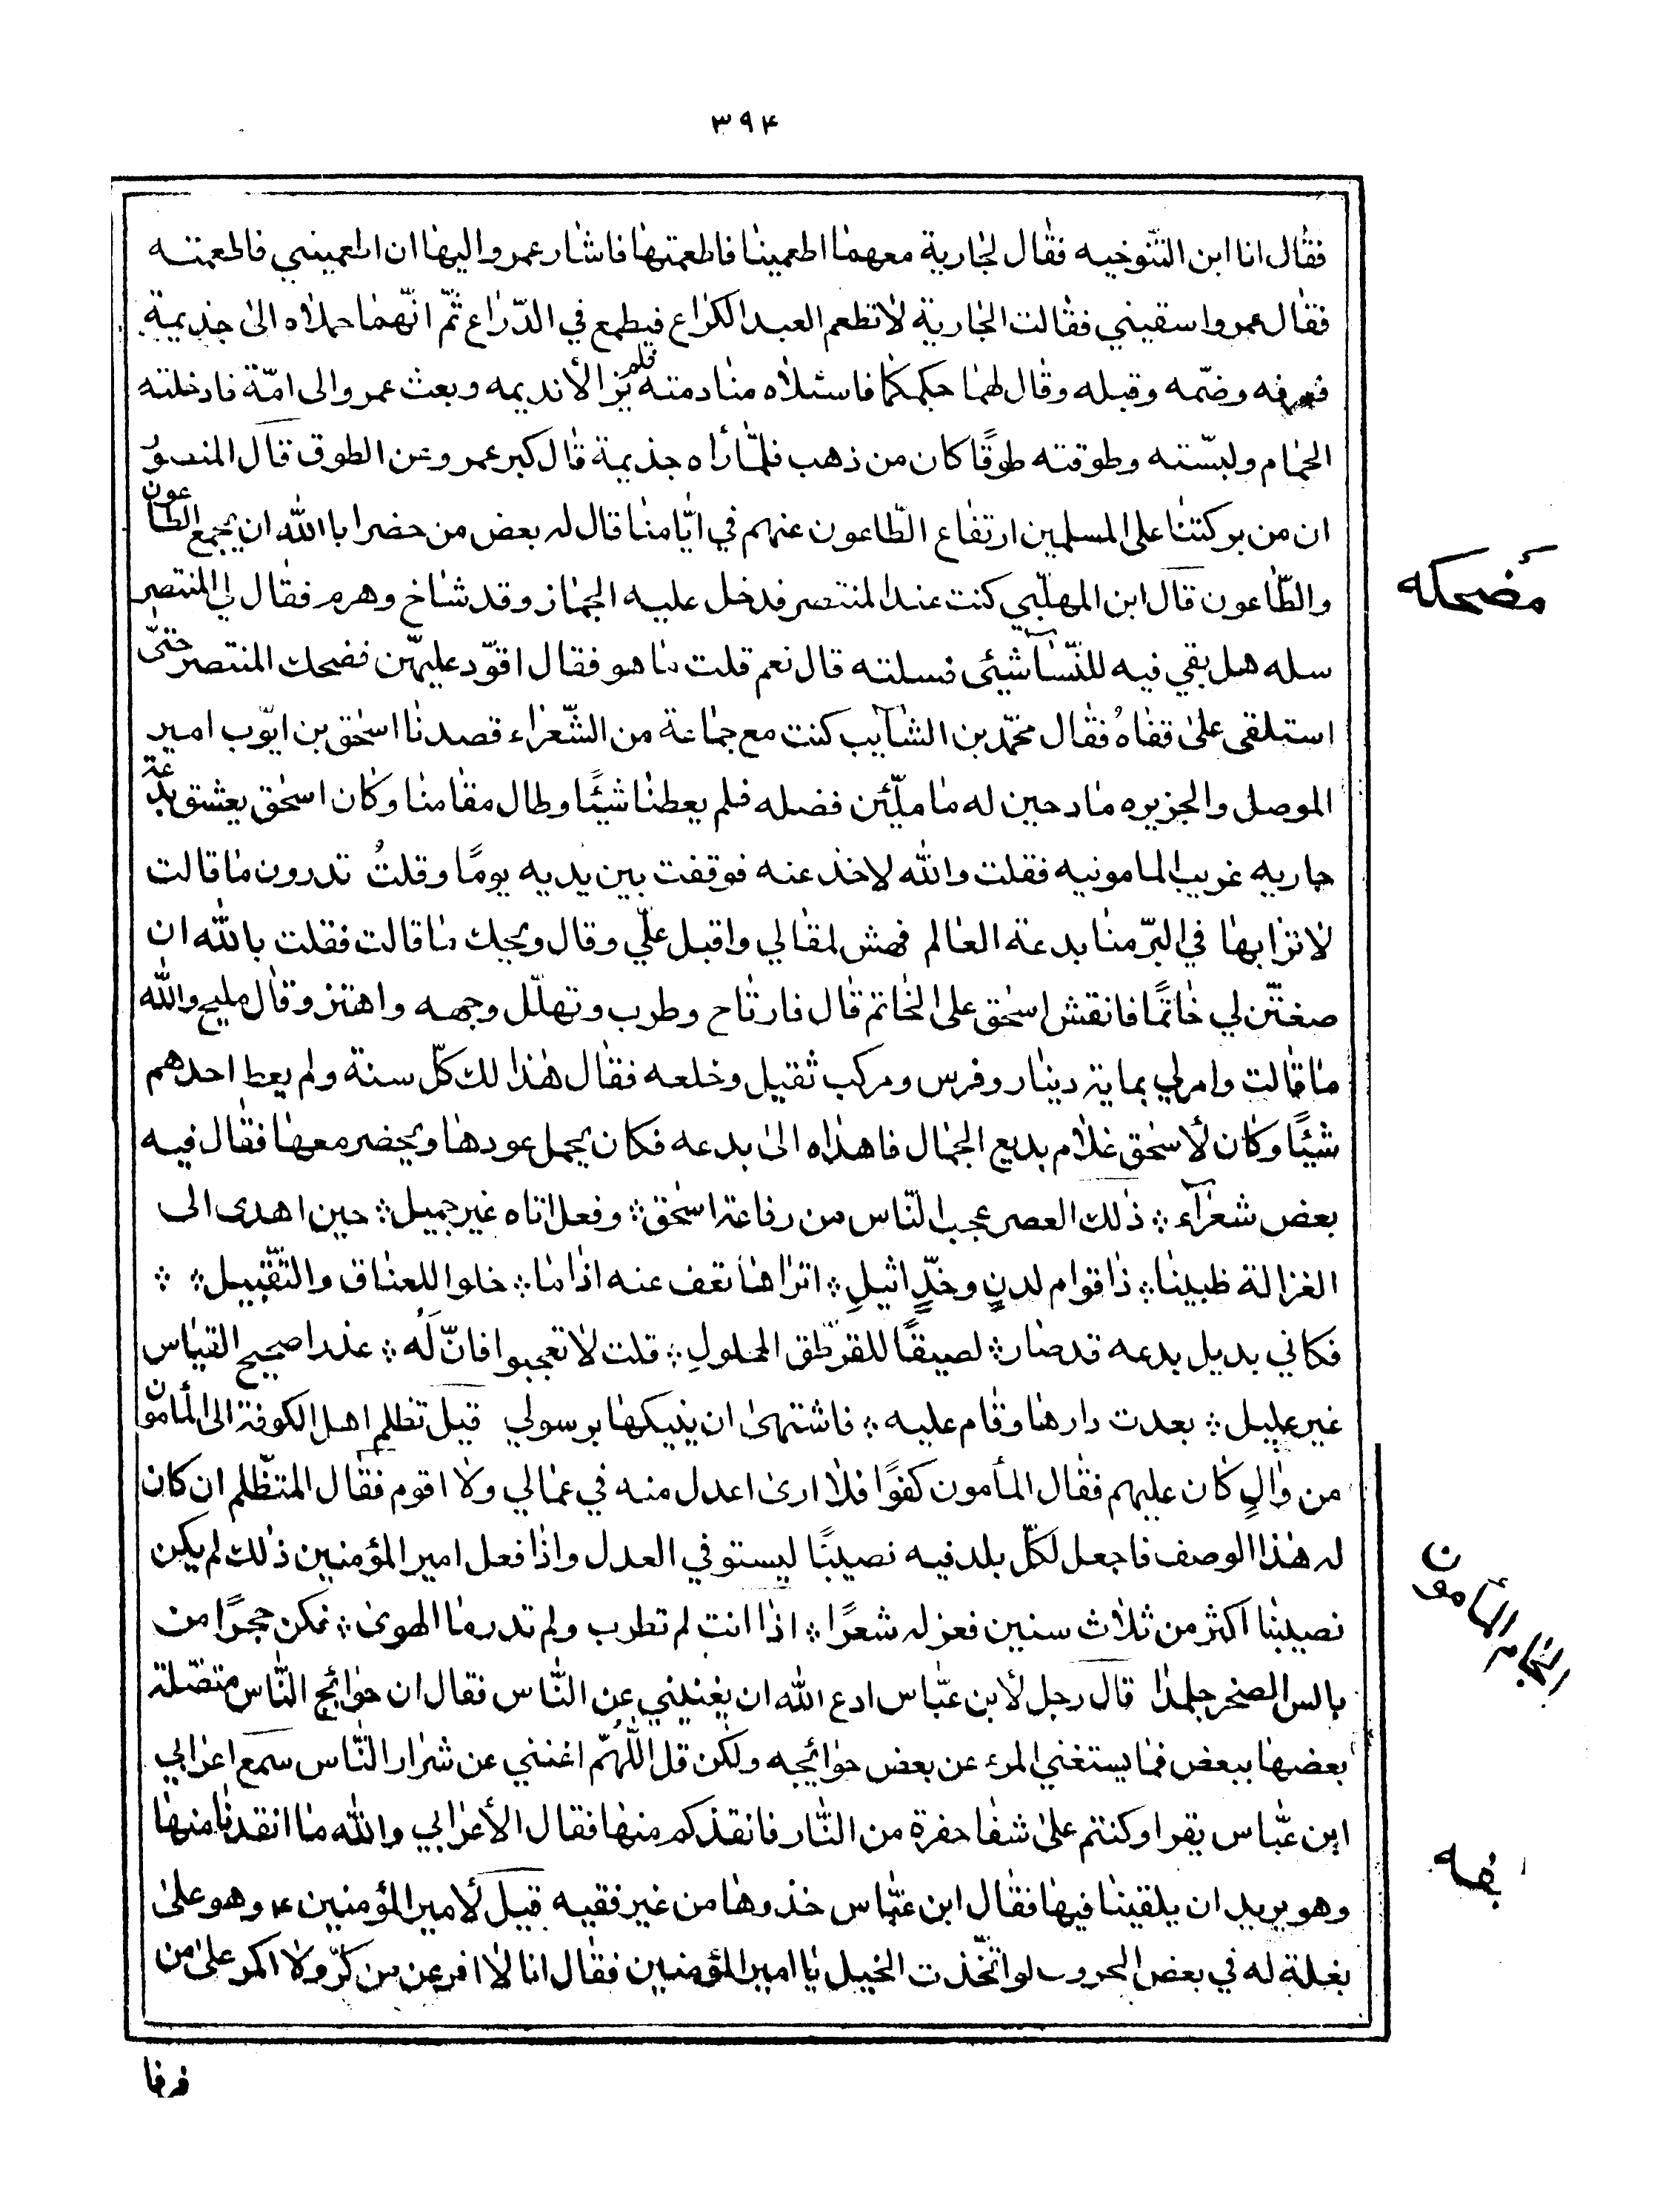 ٣٩۴
فقال انا ابن التنوخيه فقال لجارية معهما اطعمينا فاطعمتها فاشار عمرو اليها ان اطعميني فاطعمته
فقال عمرو اسقيني فقالت الجارية لا تطعم العبد الكراع فيطمع في الذّراع ثمّ انّهما حملاه الى جذيمة
فعرفه وضمّه وقبله وقال لهما حكمكما فاسئلاه منادمته فلم يزالا نديمه وبعث عمرو الى امّة فادخلته
الحمام ولبسّته وطوقته طوقًا كان من ذهب فلمّا رأه جذيمة قال كبر عمرو عن الطوق قال المنصور
ان من بركتنا على المسلمين ارتفاع الطّاعون عنهم في ايّامنا قال له بعض من حضر ابا الله ان يجمع الطاعون
والطّاعون قال ابن المهلّبي كنت عند المنتصر فدخل عليه الجماز وقد شاخ وهرم فقال لي المنتصر
سله هل بقي فيه للنّسآ شيئى فسلته قال نعم قلت ما هو فقال اقوّد عليهّن فضحك المنتصر حتىّ
استلقى على قفاهُ فقال محمّد بن الشايب كنت مع جماعة من الشّعراء قصدنا اسحق بن ايّوب امير
الموصل والجزيره مادحين له ماملّين فضله فلم يعطنا شيئًا وطال مقامنا وكان اسحق يعشق بدعة
جاريه غريب المامونيه فقلت والله لاخذ عنه فوقفت بين يديه يومًا وقلتُ تدرون ما قالت
لاترابها في البرّ منا بدعة العالم فهش لمقالي واقبل علّي وقال ويحك ما قالت فقلت بالله ان
صغتّن لي خاتمًا فانقش اسحق على الخاتم قال فارتاح وطرب وتهلّل وجهه واهتز وقال مليح والله
ما قالت وامر لي بماية دينار وفرس ومركب ثقيل وخلعه فقال هذا لك كلّ سنة ولم يعط احدهم
شيئًا وكان لأسحق غلام بديع الجمال فاهداه الى بدعه فكان يحمل عودها ويحضر معها فقال فيه
بعض شعرآء ⁘ ذلك العصر عجب النّاس من رفاعة اسحق ⁘ وفعل اتاه غير جميل ⁘ حين اهدى الى
الغزالة ظبينا ⁘ ذا قوام لدنٍ وخدٍّ اثيلِ ⁘ اتراها تعف عنه اذا ما ⁘ خلوا للعناق والتّقبيل ⁘ ⁘
فكاني بديل بدعه قد صار ⁘ لصيقًا للقرطق المحلولِ ⁘ قلت لا تعجبوا فانّ لَه ⁘ عذرا صحيح القياس
غير عليل ⁘ بعدت دارها وقام عليه ⁘ فاشتهى ان ينيكها برسولي قيل تظلم اهل الكوفة الى المأمون
من والٍ كان عليهم فقال المأمون كفوًا فلا ارى اعدل منه في عمالي ولا اقوم فقال المتظّلم ان كان
له هذا الوصف فاجعل لكلّ بلد فيه نصيبًا ليستوفي العدل واذا فعل امير المؤمنين ذلك لم يكن
نصيبنا اكثر من ثلاث سنين فعزله شعرًا ⁘ اذا انت لم تطرب ولم تدر ما الهوى ⁘ فكن حجرًا من
يالبس الصخر جلمدا قال رجل لأبن عبّاس ادع الله ان يغنيني عن النّاس فقال ان حوائج النّاس متصّلة
بعضها ببعض فما يستغني المرء عن بعض حوائجه ولكن قل اللّهُمّ اغنني عن شرار النّاس سمع اعرابي
ابن عبّاس يقرا وكنتم على شفا حفرة من النّار فانقذكم منها فقال الأعرابي والله ما انقدنا منها
وهو يريد ان يلقينا فيها فقال ابن عبّاس خذوها من غير فقيه قيل لأمير المؤمنين ۴ وهو على
بغلة له في بعض الحروب لو اتّخذت الخيل يا امير المؤمنين فقال انا لا افر عن من كرّ ولا اكر على من
فرفا
مضحكه
المأمون